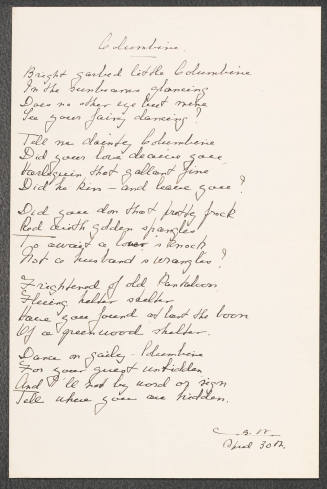 Columbine.
Bright garbed little Columbine
In the sunbeams glancing
Does no other eye but mine
See your fairy dancing?
Tell me dainty Columbine
Did your love deceive you
Harlequin that gallant fine
Did he kiss - and leave you?
Did you don that pretty frock
Red with golden spangles
To await a lover's knock
Not a husband's wrangles?
Frightened of old Pantaloon
Fleeing helter skelter
Have you found at last the boon
Of a greenwood shelter.
Dance on gaily - Columbine
For your guest unbidden
And I'll not by word or sign
Tell where you are hidden.
C. B. W.
April 30th.